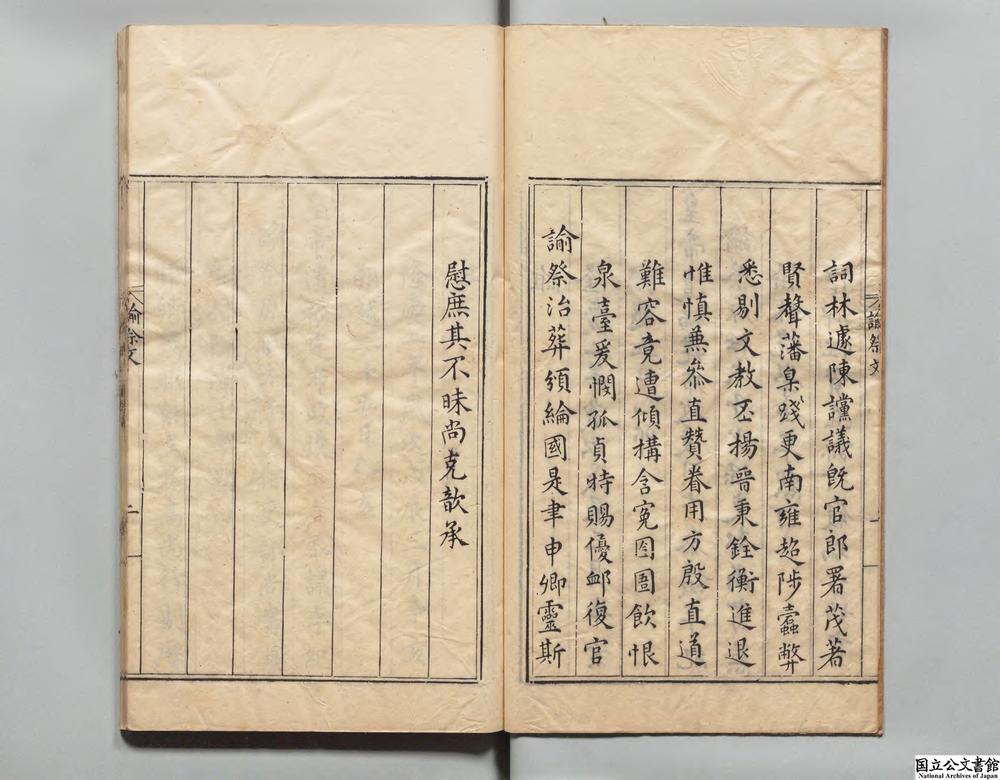 詞林遽陳讜議旣官郎署茂著
賢聲藩臬踐更南雍超陟蠧弊
悉剔文教丕揚晉秉銓衡進退
惟慎兼叅直贊眷用方殷直道
難容竟遭傾構含寃囹圄飲恨
泉臺爰憫孤貞特賜優䘏復官
諭祭治葬頒綸國是聿申卿靈斯
慰庶其不昧尚克歆承
諭祭文
一
諭祭文
二
国立公文書館
National Archives of Japan